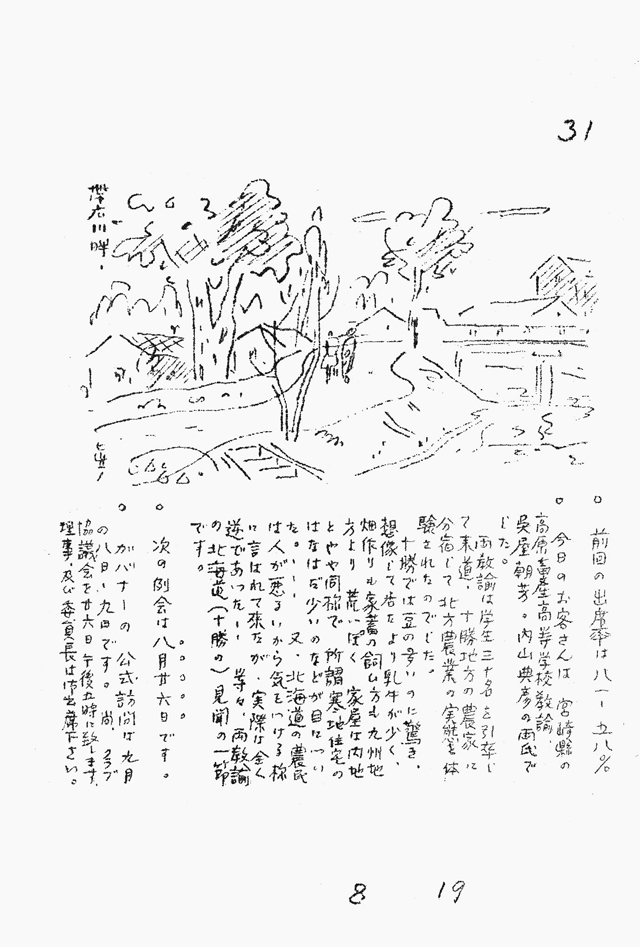 31
帯広川畔
○ 前回の出席率は八一・五八%
○ 今日のお客さんは 宮崎縣の
高原畜産高等学校教諭
呉屋朝芳。内山典彦の両氏で
した。
両教諭は学生三十名を引率し
て来道、十勝地方の農家に
分宿して北方農業の実態を体
験されたのでした。
十勝では豆の多いのに驚き、
想像して居たより乳牛が少く、
畑作りも家畜の飼い方も九州地
方より荒いぽく 家屋は内地
とやや同称で 所謂寒地住宅の
はなはだ少いのなどが目につい
た。― 又、北海道の農民
は人が悪るいから気をつける称
に言はれて来たが、実際は全く
逆であった― 等々、両教諭
の北海道(十勝の)見聞の一節
です。
○ 次の例会は八月廿六日です。
○ ガバナーの公式訪問は九月
の八日・九日です。尚、クラブ
協議会を廿六日午後五時に致します。
理事、及び委員長は御出席下さい。
8 19